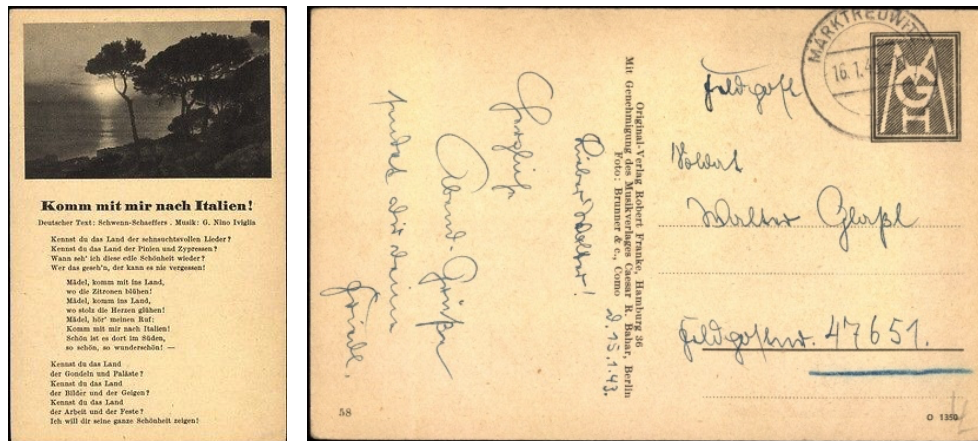 Komm mit mir nach Italien!
Deutscher Text: Schwenn-Schaeffers . Musik: G. Nino Iviglia
Kennst du das Land der sehnsuchtsvollen Lieder?
Kennst du das Land der Pinien und Zypressen?
Wann seh' ich diese edle Schönheit wieder?
Wer das geseh'n, der kann es nie vergessen!
Mädel, komm mit ins Land,
wo die Zitronen blühen!
Mädel, komm ins Land,
wo stolz die Herzen glühen!
Mädel, hör' meinen Ruf:
Komm mit mir nach Italien!
Schön ist es dort im Süden,
so schön, so wunderschön! —
Kennst du das Land
der Gondeln und Paläste?
Kennst du das Land
der Bilder und der Geigen?
Kennst du das Land
der Arbeit und der Feste?
Ich will dir seine ganze Schönheit zeigen!
D. 15.1.43.
Lieber Walter!
Herzliche
Abend-Grüße
sendet dir deine
Friedl.
58
Original-Verlag Robert Franke, Hamburg 36
Mit Genehmigung des Musikverlages Caesar R. Bahar, Berlin
Foto: Brunner & c., Como
MARKTREDWITZ
16.1.4
Feldpost
Soldat
Walter Glaßl
Feldpostnr. 47651.
O 1350